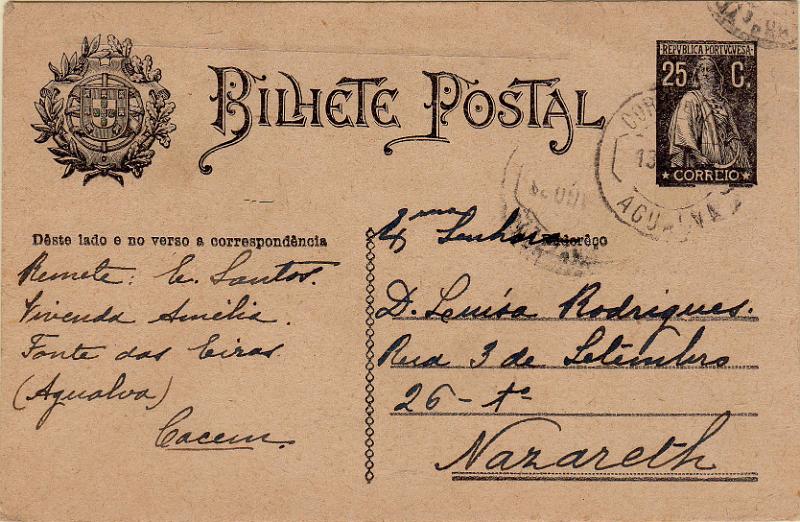 BILHETE POSTAL
REPVBLICA PORTVGVESA
25 C.
CORREIO
AGUALVA
13
Dêste lado e no verso a correspondência
Remete: E. Santos.
Vivenda Amélia.
Fonte das Eiras.
(Agualva)
Cacem.
Exma Senhora
D. Luísa Rodrigues.
Rua 3 de Setembro
26 -
Nazareth